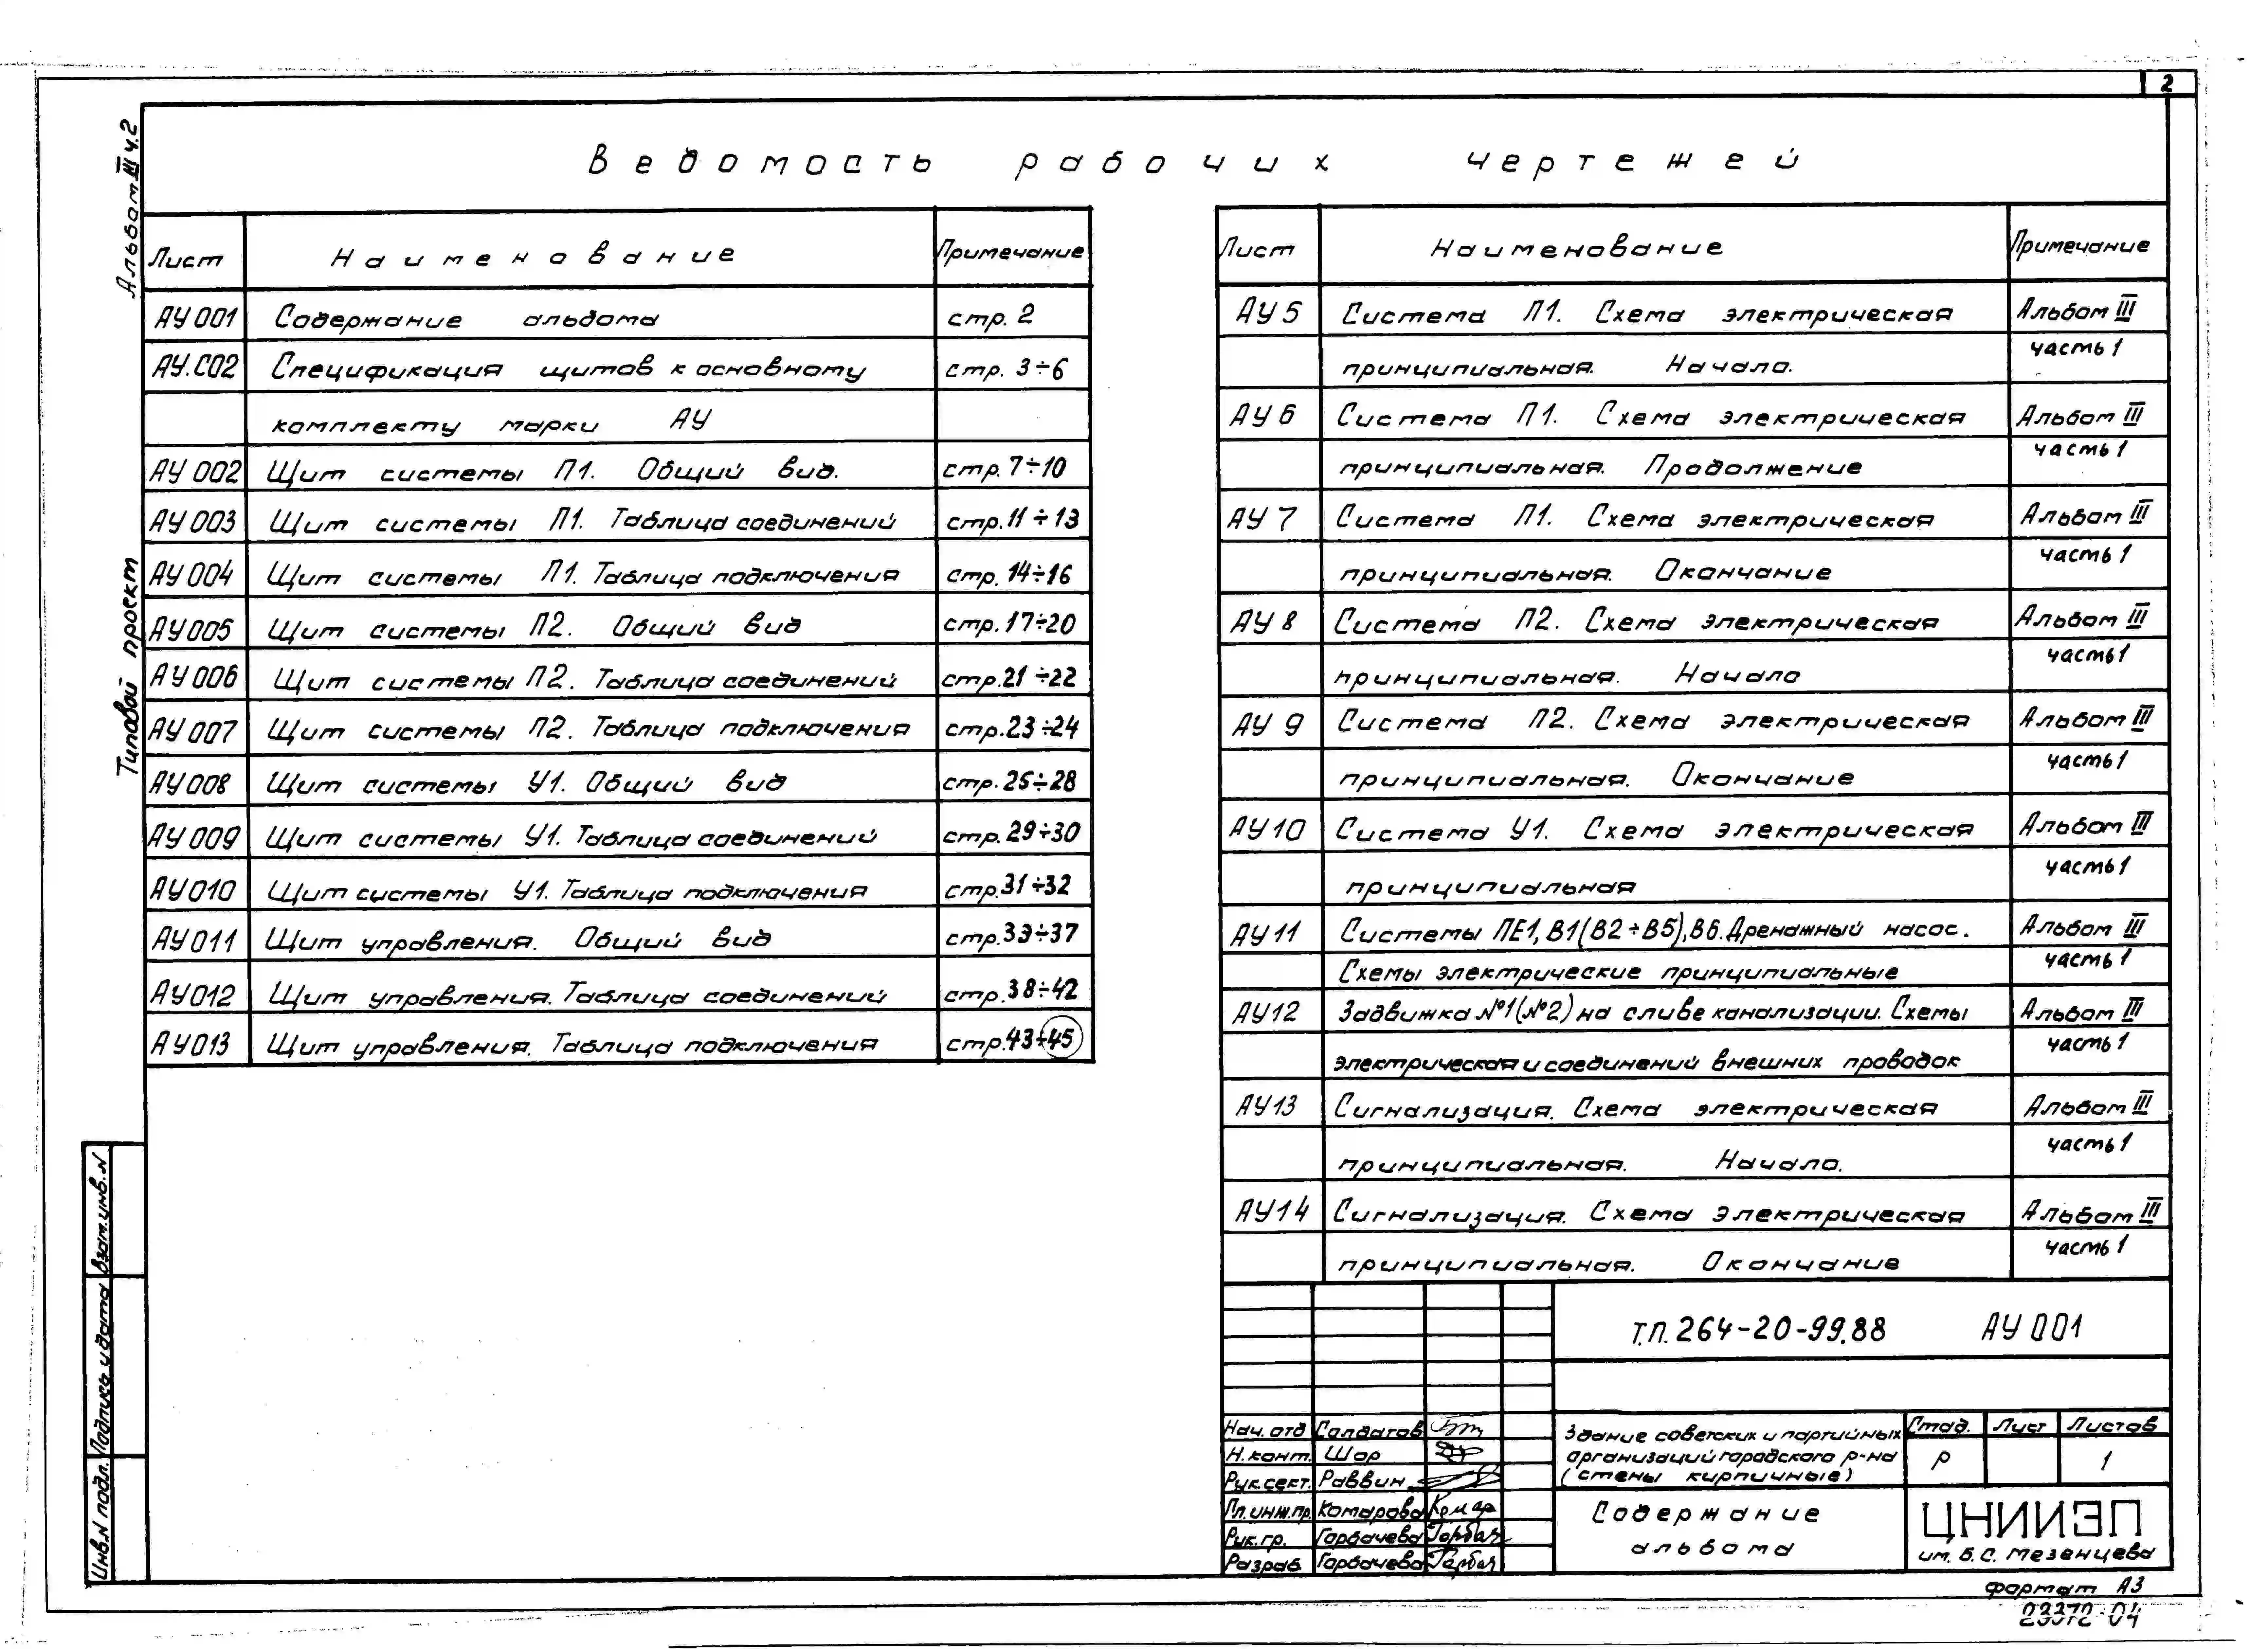 2
Альбом III ч.2
Типовой проект
Ведомость рабочих чертежей
Лист Наименование Примечание
АУ001 Содержание альбома стр. 2
АУ.С02 Спецификация щитов к основному стр. 3÷6
комплекту марки АУ
АУ002 Щит системы П1. Общий вид. стр. 7÷10
АУ003 Щит системы П1. Таблица соединений стр. 11÷13
АУ004 Щит системы П1. Таблица подключения стр. 14÷16
АУ005 Щит системы П2. Общий вид стр. 17÷20
АУ006 Щит системы П2. Таблица соединений стр. 21÷22
АУ007 Щит системы П2. Таблица подключения стр. 23÷24
АУ008 Щит системы У1. Общий вид стр. 25÷28
АУ009 Щит системы У1. Таблица соединений стр. 29÷30
АУ010 Щит системы У1. Таблица подключения стр. 31÷32
АУ011 Щит управления. Общий вид стр. 33÷37
АУ012 Щит управления. Таблица соединений стр. 38÷42
АУ013 Щит управления. Таблица подключения стр. 43÷45
Лист Наименование Примечание
АУ5 Система П1. Схема электрическая Альбом III
принципиальная. Начало. часть 1
АУ6 Система П1. Схема электрическая Альбом III
принципиальная. Продолжение часть 1
АУ7 Система П1. Схема электрическая Альбом III
принципиальная. Окончание часть 1
АУ8 Система П2. Схема электрическая Альбом III
принципиальная. Начало часть 1
АУ9 Система П2. Схема электрическая Альбом III
принципиальная. Окончание часть 1
АУ10 Система У1. Схема электрическая Альбом III
принципиальная часть 1
АУ11 Системы ПЕ1, В1(В2÷В5), В6. Дренажный насос. Альбом III
Схемы электрические принципиальные часть 1
АУ12 Задвижка №1(№2) на сливе канализации. Схемы Альбом III
электрическая и соединений внешних проводок часть 1
АУ13 Сигнализация. Схема электрическая Альбом III
принципиальная. Начало. часть 1
АУ14 Сигнализация. Схема электрическая Альбом III
принципиальная. Окончание часть 1
Т.П. 264-20-99.88 АУ001
Нач. отд Солдатов
Н. конт. Шор
Рук. сект. Раввин
Гл. инж. пр. Комарова Комар
Рук. гр. Горбачева Горбач
Разраб. Горбачева Горбач
Здание советских и партийных
организаций городского р-на
(стены кирпичные)
Стад. Лист Листов
Р 1
Содержание
альбома
ЦНИИЭП
им. Б.С. Мезенцева
Взам. инв. N
Подпись и дата
Инв. N подл.
формат А3
23372-04